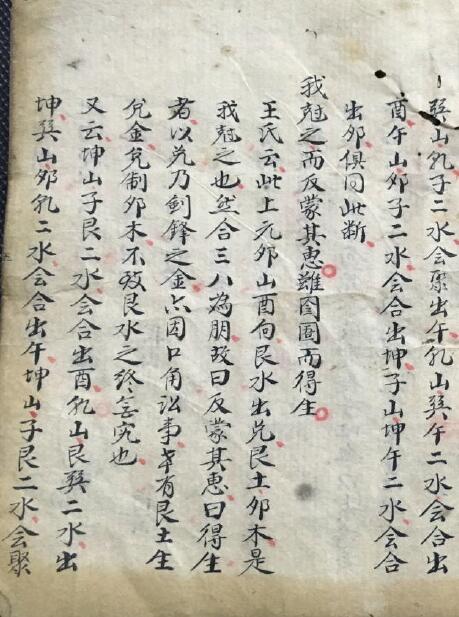 巽山乹子二水会聚出午乹山巽午二水会合出
酉午山卯子二水会合出坤子山坤午二水会合
出卯俱同此断
我尅之而反蒙其惠雖囹圄而得生
王氏云此上元卯山酉向艮水出兑艮土卯木是
我尅之也然合三八為朋故曰反蒙其惠曰得生
者以兑乃剑鋒之金占因口角訟事幸有艮土生
兊金兑制卯木不致艮水之终奌究也
又云坤山子艮二水会合出酉乹山艮巽二水出
坤巽山卯乹二水会合出午坤山子艮二水会聚